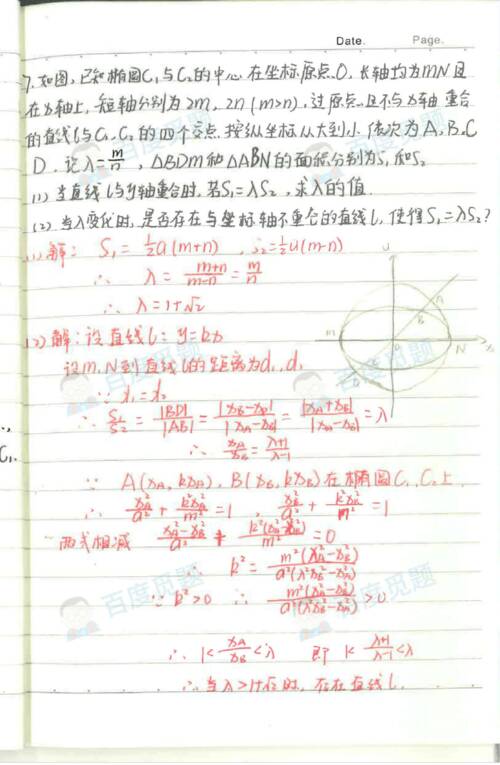 Date.
Page.
7.如图,已知椭圆C₁与C₂的中心在坐标原点O,长轴均为MN且
在x轴上,短轴分别为2m,2n(m>n),过原点且不与x轴重合
的直线l与C₁,C₂的四个交点按纵坐标从大到小依次为A,B,C
D.记λ=m/n,△BDM和△ABN的面积分别为S₁和S₂
(1)当直线l与y轴重合时,若S₁=λS₂,求λ的值
(2)当λ变化时,是否存在与坐标轴不重合的直线l,使得S₁=λS₂?
(1)解: S₁=½a(m+n) , S₂=½a(m-n)
∴ λ=(m+n)/(m-n)=m/n
∴ λ=1+√2
(2)解:设直线l:y=kx
设M,N到直线l的距离为d₁,d₂
∵ d₁=d₂
∴ S₁/S₂=|BD|/|AB|=|xB-xD|/|xA-xB|=|xA+xB|/|xA-xB|=λ
∴ xA/xB=(λ+1)/(λ-1)
∵ A(xA,kxA),B(xB,kxB)在椭圆C₁,C₂上
∴ xA²/a²+k²xA²/m²=1 , xB²/a²+k²xB²/m²=1
两式相减
∴ k²=
∵ k²>0 ∴ >0
∴ 1<xA/xB<λ 即 1<(λ+1)/(λ-1)<λ
∴当λ>1+√2时,存在直线l.
A
B
M
O
N
x
D
C₁.
百度觅题
百度觅题
百度觅题
百度觅题
百度觅题
百度觅题